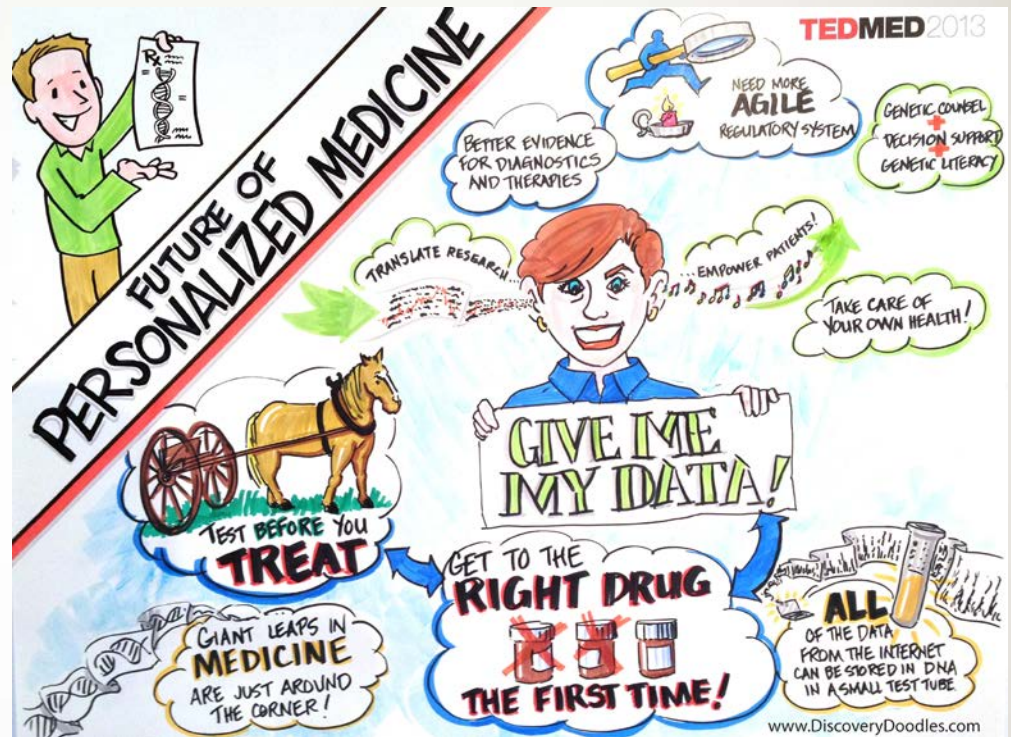 TEDMED2013
FUTURE OF
PERSONALIZED MEDICINE
Rx
NEED MORE
AGILE
REGULATORY SYSTEM
GENETIC COUNSEL
+
DECISION SUPPORT
+
GENETIC LITERACY
BETTER EVIDENCE
FOR DIAGNOSTICS
AND THERAPIES
TRANSLATE RESEARCH
EMPOWER PATIENTS!
TAKE CARE OF
YOUR OWN HEALTH!
GIVE ME
MY DATA!
TEST BEFORE YOU
TREAT
GET TO THE
RIGHT DRUG
THE FIRST TIME!
GIANT LEAPS IN
MEDICINE
ARE JUST AROUND
THE CORNER!
ALL
OF THE DATA
FROM THE INTERNET
CAN BE STORED IN DNA
IN A SMALL TEST TUBE.
www.DiscoveryDoodles.com